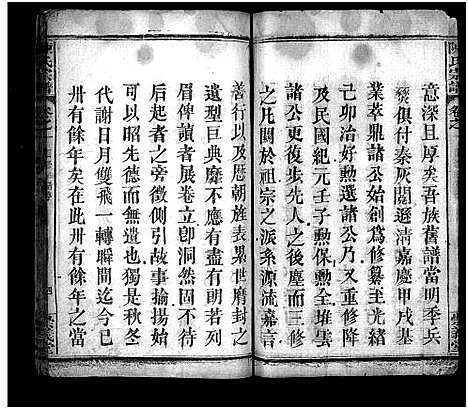 意深且厚矣吾族舊譜當明季兵
燹俱付秦灰閱遜清嘉慶甲戌基
業萃鼎諸公始創為修纂至光緒
己卯治好勲選諸公乃又重修降
及民國紀元壬子勲煥全堆雲
諸公更復步先人之後塵而三修
之凡關於祖宗之派系源流嘉言
善行以及曆朝旌表累世膺封之
遺型巨典靡不應有盡有朗朗列
眉俾讀者展卷立即洞然固不待
後起者之旁徵側引故事揄揚始
可以昭先德而無遺也獨是秋冬
代謝日月雙飛一轉瞬間迄今又
卅有餘年矣在此卅有餘年之當
陳氏宗譜
卷之一
四